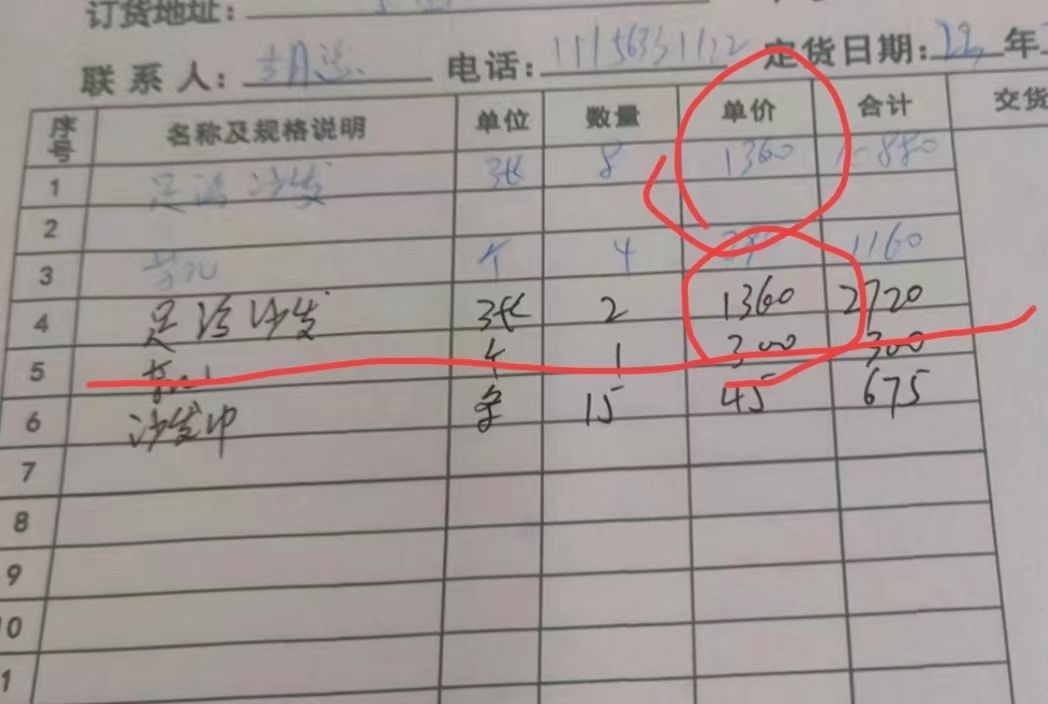 订货地址:
联系人: 胡总 电话: 定货日期: 22 年
序号 名称及规格说明 单位 数量 单价 合计 交货
1 足浴沙发 张 8 1360 10880
2
3 个 4 1160
4 足浴沙发 张 2 1360 2720
5 个 1 300 300
6 沙发巾 条 15 45 675
7
8
9
10